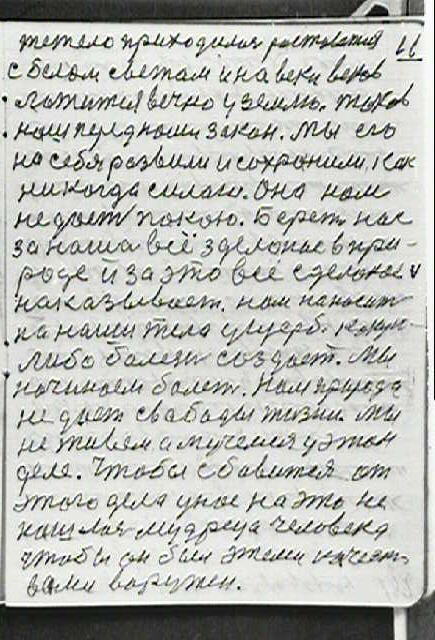 тежело приходился роставатися 11
с белом светам и на веки веков
ложится вечно у землю. таков
наш передномы закон. Мы его
на себя розвили и сохронили, как
никогда силою. Она нам
не дает покою. Берет нас
за наша всё зделоное в при-
роде и за это всё сделоное
наказывает. нам наносит
на наши тела ущерб. какую-
либо болезн создает. Мы
начинаем болет. Нам природа
не дает свабоды жизни. Мы
не живем а мучемся у этом
деле. Чтобы сбавится от
этого дела у нас на это не
нашлось мудреца человека
чтобы он был этими качест-
вами воружен.